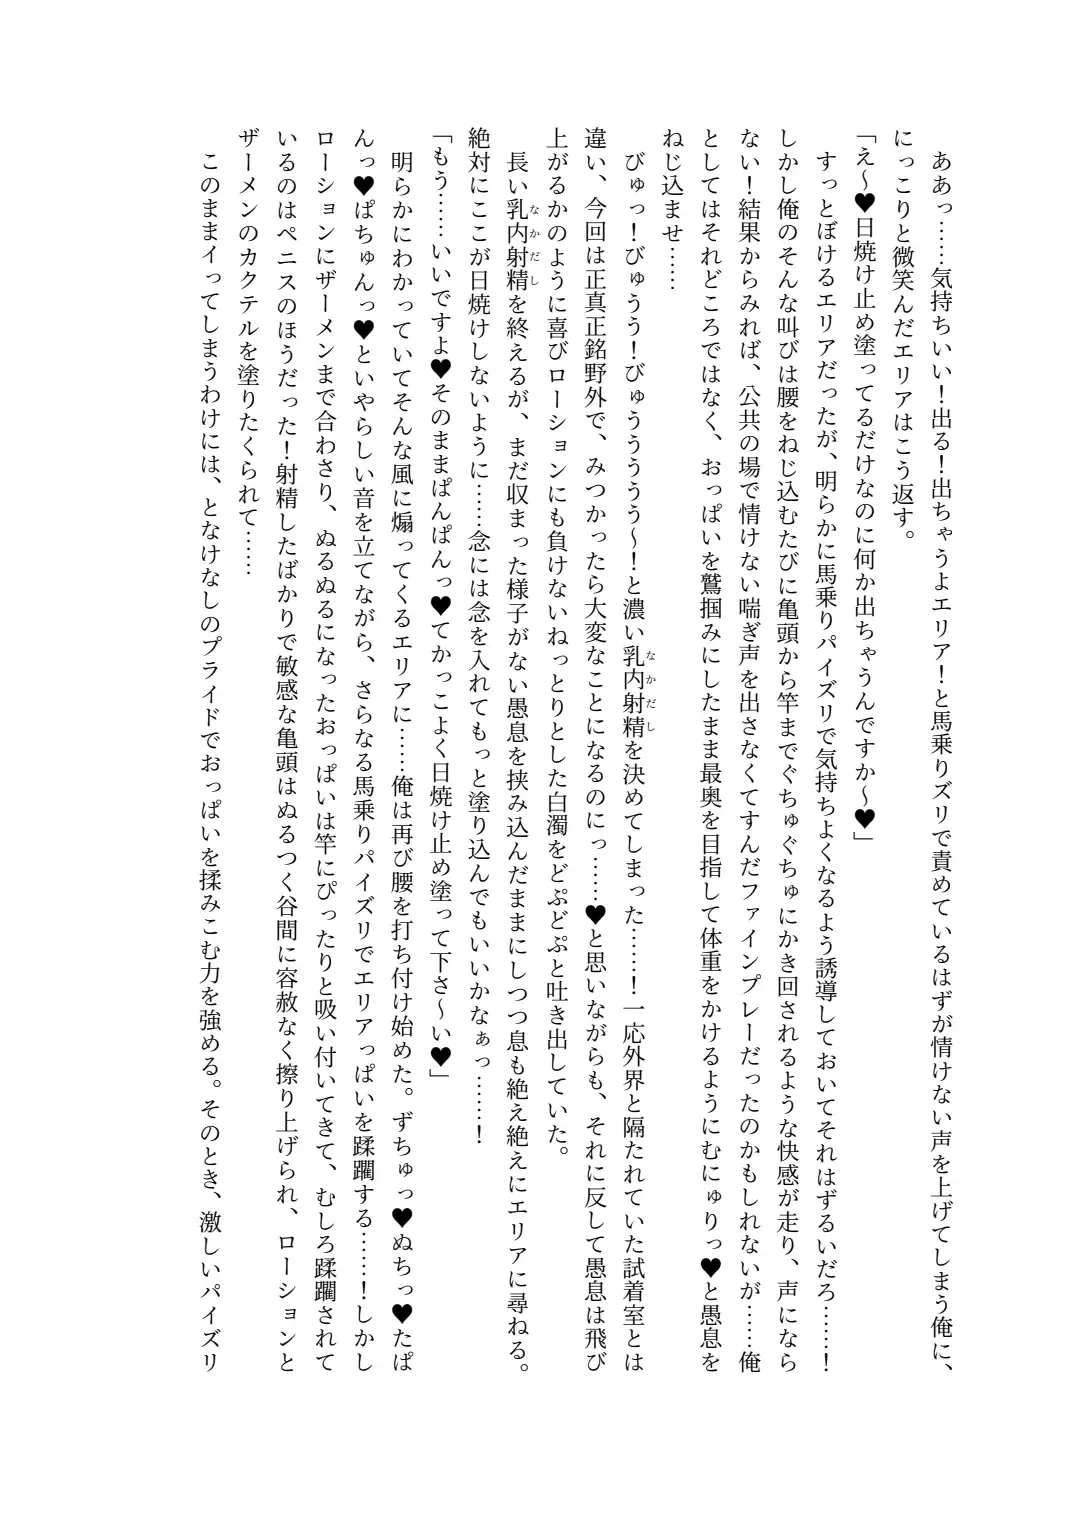 ああっ……気持ちいい！出る！出ちゃうよエリア！と馬乗りズリで責めているはずが情けない声を上げてしまう俺に、
にっこりと微笑んだエリアはこう返す。
「え～♥日焼け止め塗ってるだけなのに何か出ちゃうんですか～♥」
　すっとぼけるエリアだったが、明らかに馬乗りパイズリで気持ちよくなるよう誘導しておいてそれはずるいだろ……！
しかし俺のそんな叫びは腰をねじ込むたびに亀頭から竿までぐちゅぐちゅにかき回されるような快感が走り、声になら
ない！結果からみれば、公共の場で情けない喘ぎ声を出さなくてすんだファインプレーだったのかもしれないが……俺
としてはそれどころではなく、おっぱいを鷲掴みにしたまま最奥を目指して体重をかけるようにむにゅりっ♥と愚息を
ねじ込ませ……
　びゅっ！びゅうう！びゅうううう～！と濃い乳内射精なかだしを決めてしまった……！一応外界と隔たれていた試着室とは
違い、今回は正真正銘野外で、みつかったら大変なことになるのにっ……♥と思いながらも、それに反して愚息は飛び
上がるかのように喜びローションにも負けないねっとりとした白濁をどぷどぷと吐き出していた。
　長い乳内射精なかだしを終えるが、まだ収まった様子がない愚息を挟み込んだままにしつつ息も絶え絶えにエリアに尋ねる。
絶対にここが日焼けしないように……念には念を入れてもっと塗り込んでもいいかなぁっ……！
「もう……いいですよ♥そのままぱんぱんっ♥てかっこよく日焼け止め塗って下さ～い♥」
　明らかにわかっていてそんな風に煽ってくるエリアに……俺は再び腰を打ち付け始めた。ずちゅっ♥ぬちっ♥たぱ
んっ♥ぱちゅんっ♥といやらしい音を立てながら、さらなる馬乗りパイズリでエリアっぱいを蹂躙する……！しかし
ローションにザーメンまで合わさり、ぬるぬるになったおっぱいは竿にぴったりと吸い付いてきて、むしろ蹂躙されて
いるのはペニスのほうだった！射精したばかりで敏感な亀頭はぬるつく谷間に容赦なく擦り上げられ、ローションと
ザーメンのカクテルを塗りたくられて……
　このままイってしまうわけには、となけなしのプライドでおっぱいを揉みこむ力を強める。そのとき、激しいパイズリ